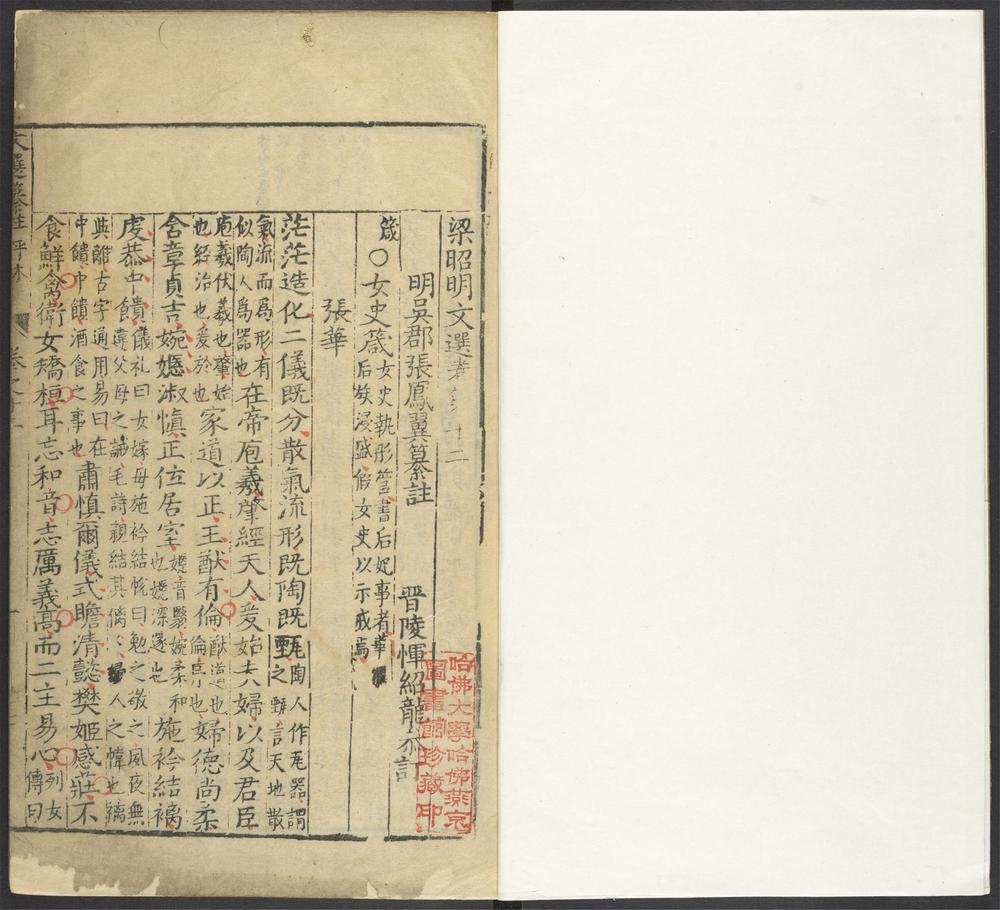 梁昭明文選卷之十二
明吳郡張鳳翼纂註
晉陵惲紹龍
箴○女史箴女史執彤管書后妃事者華
后族浸盛假女史以示戒焉
張華
茫茫造化二儀既分散氣流形既陶既甄陶人作瓦器謂
之甄言天地散
氣流而爲形有
似陶人爲器也在帝庖羲肇經天人爰始夫婦以及君臣
庖羲伏羲也肇始
也經治也爰於也家道以正王猷有倫猷道也
倫序也婦德尚柔
含章貞吉婉嫕淑慎正位居室嫕音翳婉柔和
也嫕深邃也施衿結褵
虔恭中饋儀礼曰女嫁母施衿結帨曰勉之敬之夙夜無
違父母之誡毛詩親結其褵婦人之幃也褵
與離古字通用易曰在
中饋中饋酒食之事也肅慎爾儀式瞻清懿樊姬感莊不
食鮮禽衛女矯桓耳忘和音志厲義高而二主易心列女
傳曰
文選纂註評林
卷之十二
哈佛大學哈佛燕京
圖書館珍藏印